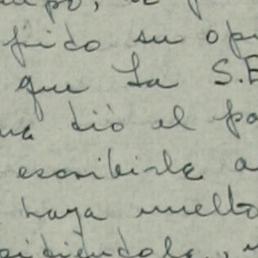 pido su opi
que La S.E
na dió el pa
escribirle a
haya vuelto
pidiéndole,